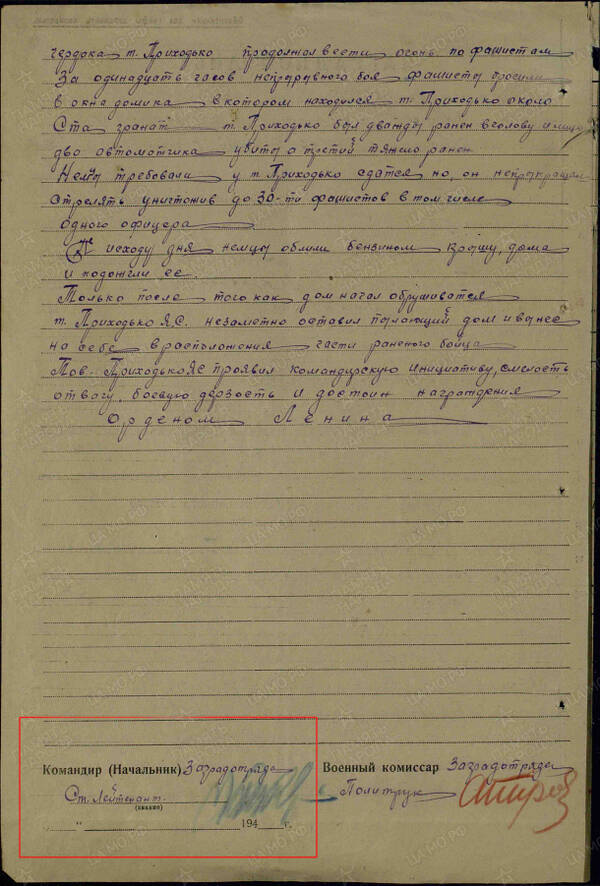 чердока т. Приходько продолжал вести огонь по фашистам
За одинадцать часов непрерывного боя фашисты бросили
в окна домика в котором находился т. Приходько около
Ста гранат т. Приходько был дважды ранен в голову и
два автоматчика убиты а третий тяжело ранен
Немцы требовали у т. Приходько сдатся но, он непрекращал
стрелять уничтожив до 30-ти фашистов в том числе
одного офицера
исходу дня немцы облили бензином крышу, дома
и подожгли ее.
Только после того как дом начал обрушиватся
т. Приходько Я.С. незаметно оставил пылающий дом и вынес
на себе в расположения части раненого бойца
Тов. Приходько ЯС проявил командирскую инициативу, смелость
отвагу, боевую дерзость и достоин награждения
Орденом Ленина
Командир (Начальник) Заградотряда
Военный комиссар Заградотряда
Ст. Лейтенант
Политрук
(звание)
" " 194 г.
ЦАМО.РФ